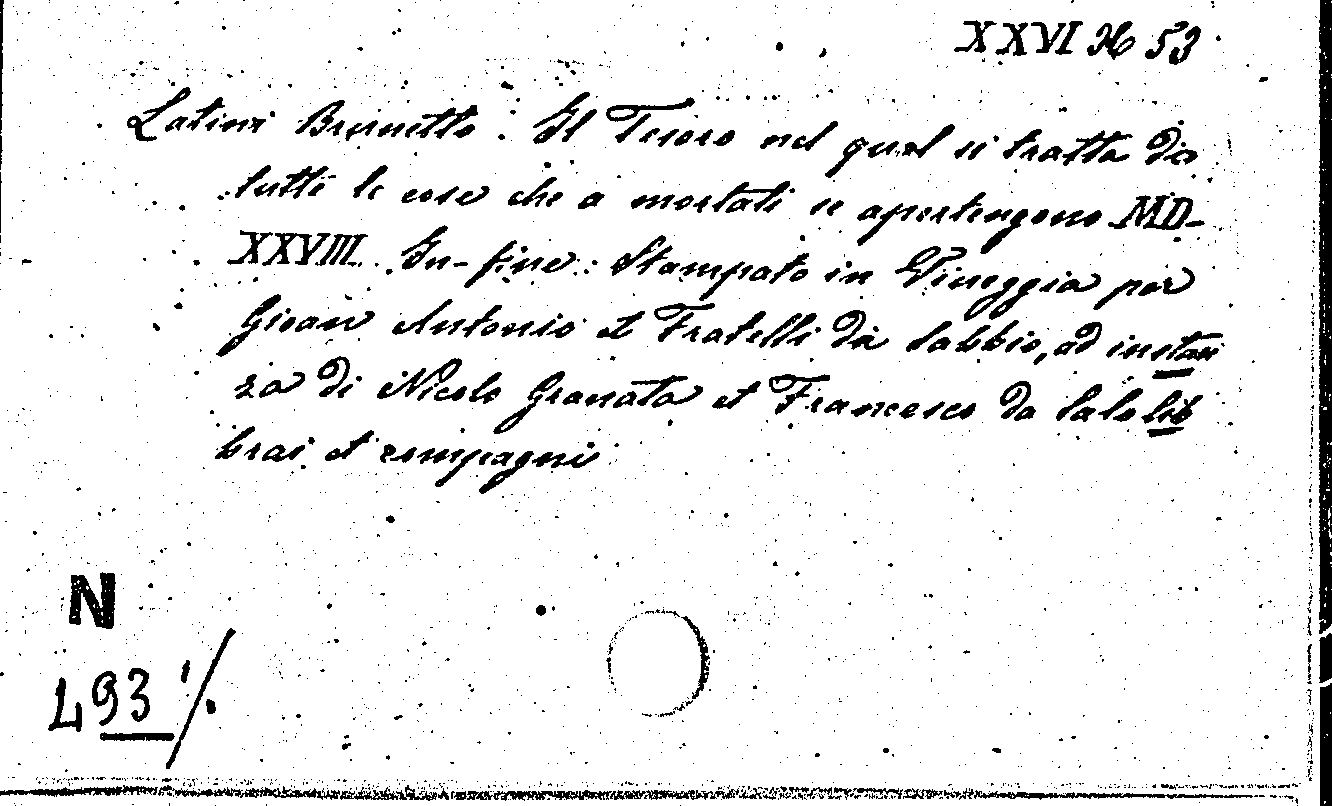 XXVI H 53
Latini Brunetto. Il Tesoro nel qual si tratta di
tutte le cose che a mortali se apertengono MD-
XXVIII. In-fine: Stampato in Vineggia per
Gioan Antonio et Fratelli da Sabbio, ad instan
za di Nicolo Granata et Francesco da Salo lib
brai et compagni
N
493